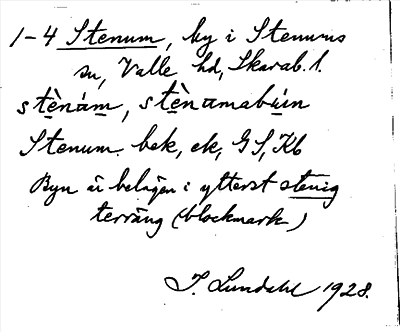 1-4 Stenum, by i Stenums
sn, Valle hd, Skarab. l.
stènám, stènamabúin
Stenum bek, ek, GS, Kb
Byn är belägen i ytterst stenig
terräng (blockmark)
I. Lundahl 1928.